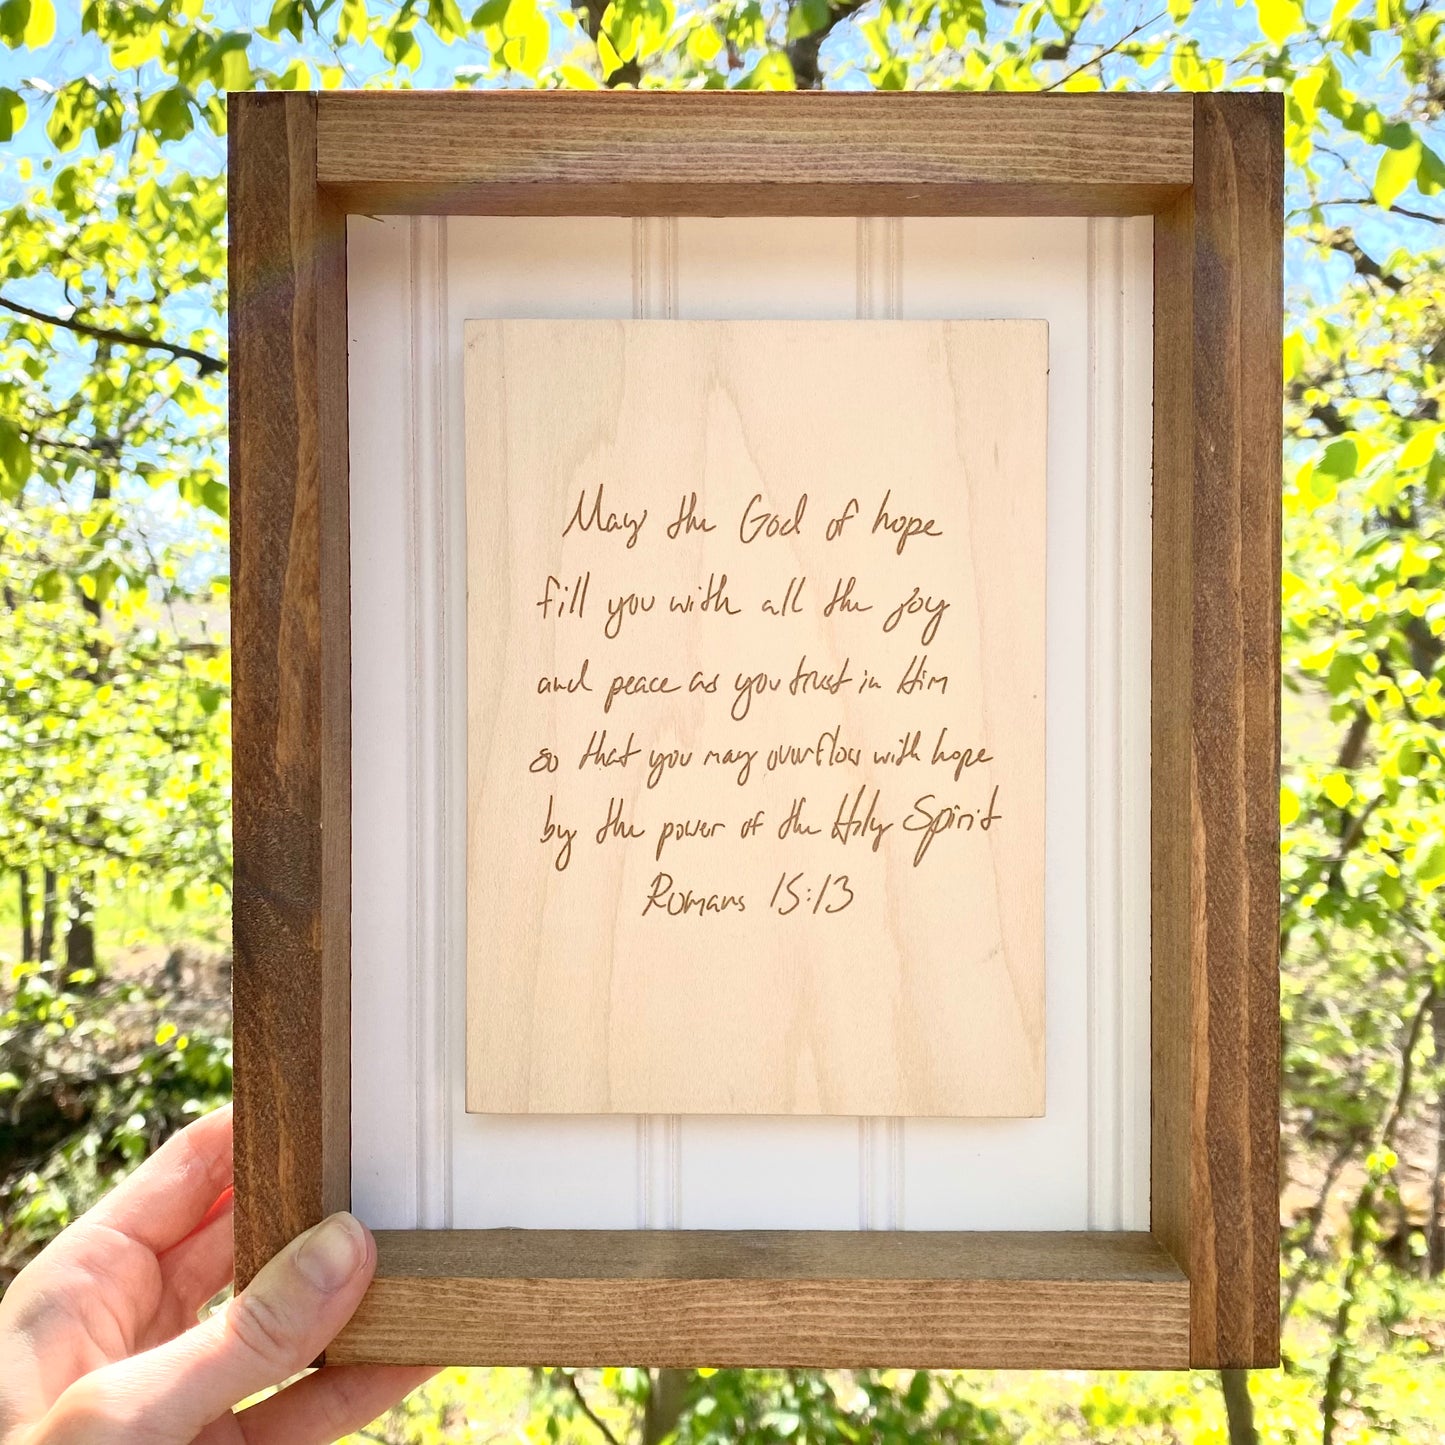 May the God of hope
fill you with all the joy
and peace as you trust in Him
so that you may overflow with hope
by the power of the Holy Spirit
Romans 15:13